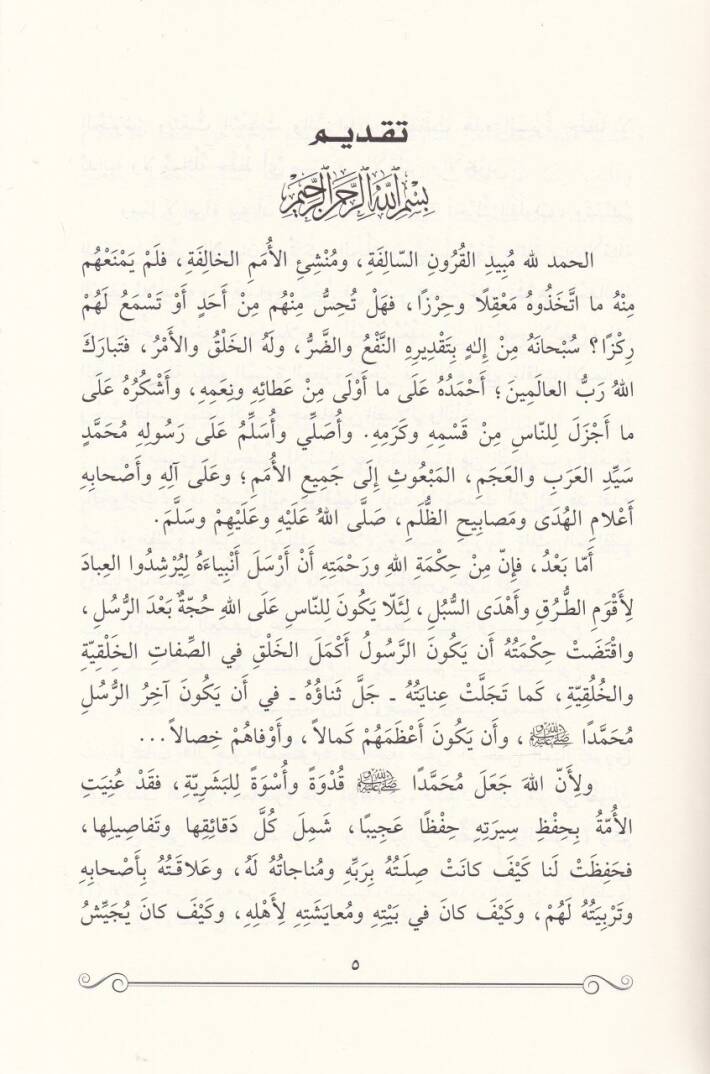 تقديم
بِسْمِ اللَّهِ الرَّحْمَنِ الرَّحِيمِ
الحمد لله مُبِيدِ القُرُونِ السّالِفَةِ، ومُنْشِئِ الأُمَمِ الخالِفَةِ، فلَمْ يَمْنَعْهُم
مِنْهُ ما اتَّخَذُوهُ مَعْقِلًا وحِرْزًا، فهَلْ تُحِسُّ مِنْهُم مِنْ أَحَدٍ أَوْ تَسْمَعُ لَهُمْ
رِكْزًا؟ سُبْحانَهُ مِنْ إِلـٰهٍ بِتَقْدِيرِهِ النَّفْعُ والضَّرُّ، ولَهُ الخَلْقُ والأَمْرُ، فتَبارَكَ
اللهُ رَبُّ العالَمِينَ؛ أَحْمَدُهُ عَلَى ما أَوْلَى مِنْ عَطائِهِ ونِعَمِهِ، وأَشْكُرُهُ عَلَى
ما أَجْزَلَ لِلنّاسِ مِنْ قَسْمِهِ وكَرَمِهِ. وأُصَلِّي وأُسَلِّمُ عَلَى رَسُولِهِ مُحَمَّدٍ
سَيِّدِ العَرَبِ والعَجَمِ، المَبْعُوثِ إِلَى جَمِيعِ الأُمَمِ؛ وعَلَى آلِهِ وأَصْحابِهِ
أَعْلامِ الهُدَى ومَصابِيحِ الظُّلَمِ، صَلَّى اللهُ عَلَيْهِ وعَلَيْهِمْ وسَلَّمَ.
أَمّا بَعْدُ، فإِنّ مِنْ حِكْمَةِ اللهِ ورَحْمَتِهِ أَنْ أَرْسَلَ أَنْبِياءَهُ لِيُرْشِدُوا العِبادَ
لِأَقْوَمِ الطُّرُقِ وأَهْدَى السُّبُلِ، لِئَلّا يَكُونَ لِلنّاسِ عَلَى اللهِ حُجّةٌ بَعْدَ الرُّسُلِ،
واقْتَضَتْ حِكْمَتُهُ أَن يَكُونَ الرَّسُولُ أَكْمَلَ الخَلْقِ في الصِّفاتِ الخَلْقِيّةِ
والخُلُقِيّةِ، كَما تَجَلَّتْ عِنايَتُهُ ـ جَلَّ ثَناؤُهُ ـ في أَن يَكُونَ آخِرُ الرُّسُلِ
مُحَمَّدًا ﷺ، وأَن يَكُونَ أَعْظَمَهُمْ كَمالاً، وأَوْفاهُمْ خِصالاً...
ولِأَنّ اللهَ جَعَلَ مُحَمَّدًا ﷺ قُدْوَةً وأُسْوَةً لِلبَشَرِيّةِ، فقَدْ عُنِيَتِ
الأُمّةُ بِحِفْظِ سِيرَتِهِ حِفْظًا عَجِيبًا، شَمِلَ كُلَّ دَقائِقِها وتَفاصِيلِها،
فحَفِظَتْ لَنا كَيْفَ كانَتْ صِلَتُهُ بِرَبِّهِ ومُناجاتُهُ لَهُ، وعَلاقَتُهُ بِأَصْحابِهِ
وتَرْبِيَتُهُ لَهُمْ، وكَيْفَ كانَ في بَيْتِهِ ومُعايَشَتِهِ لِأَهْلِهِ، وكَيْفَ كانَ يُجَيِّشُ
٥